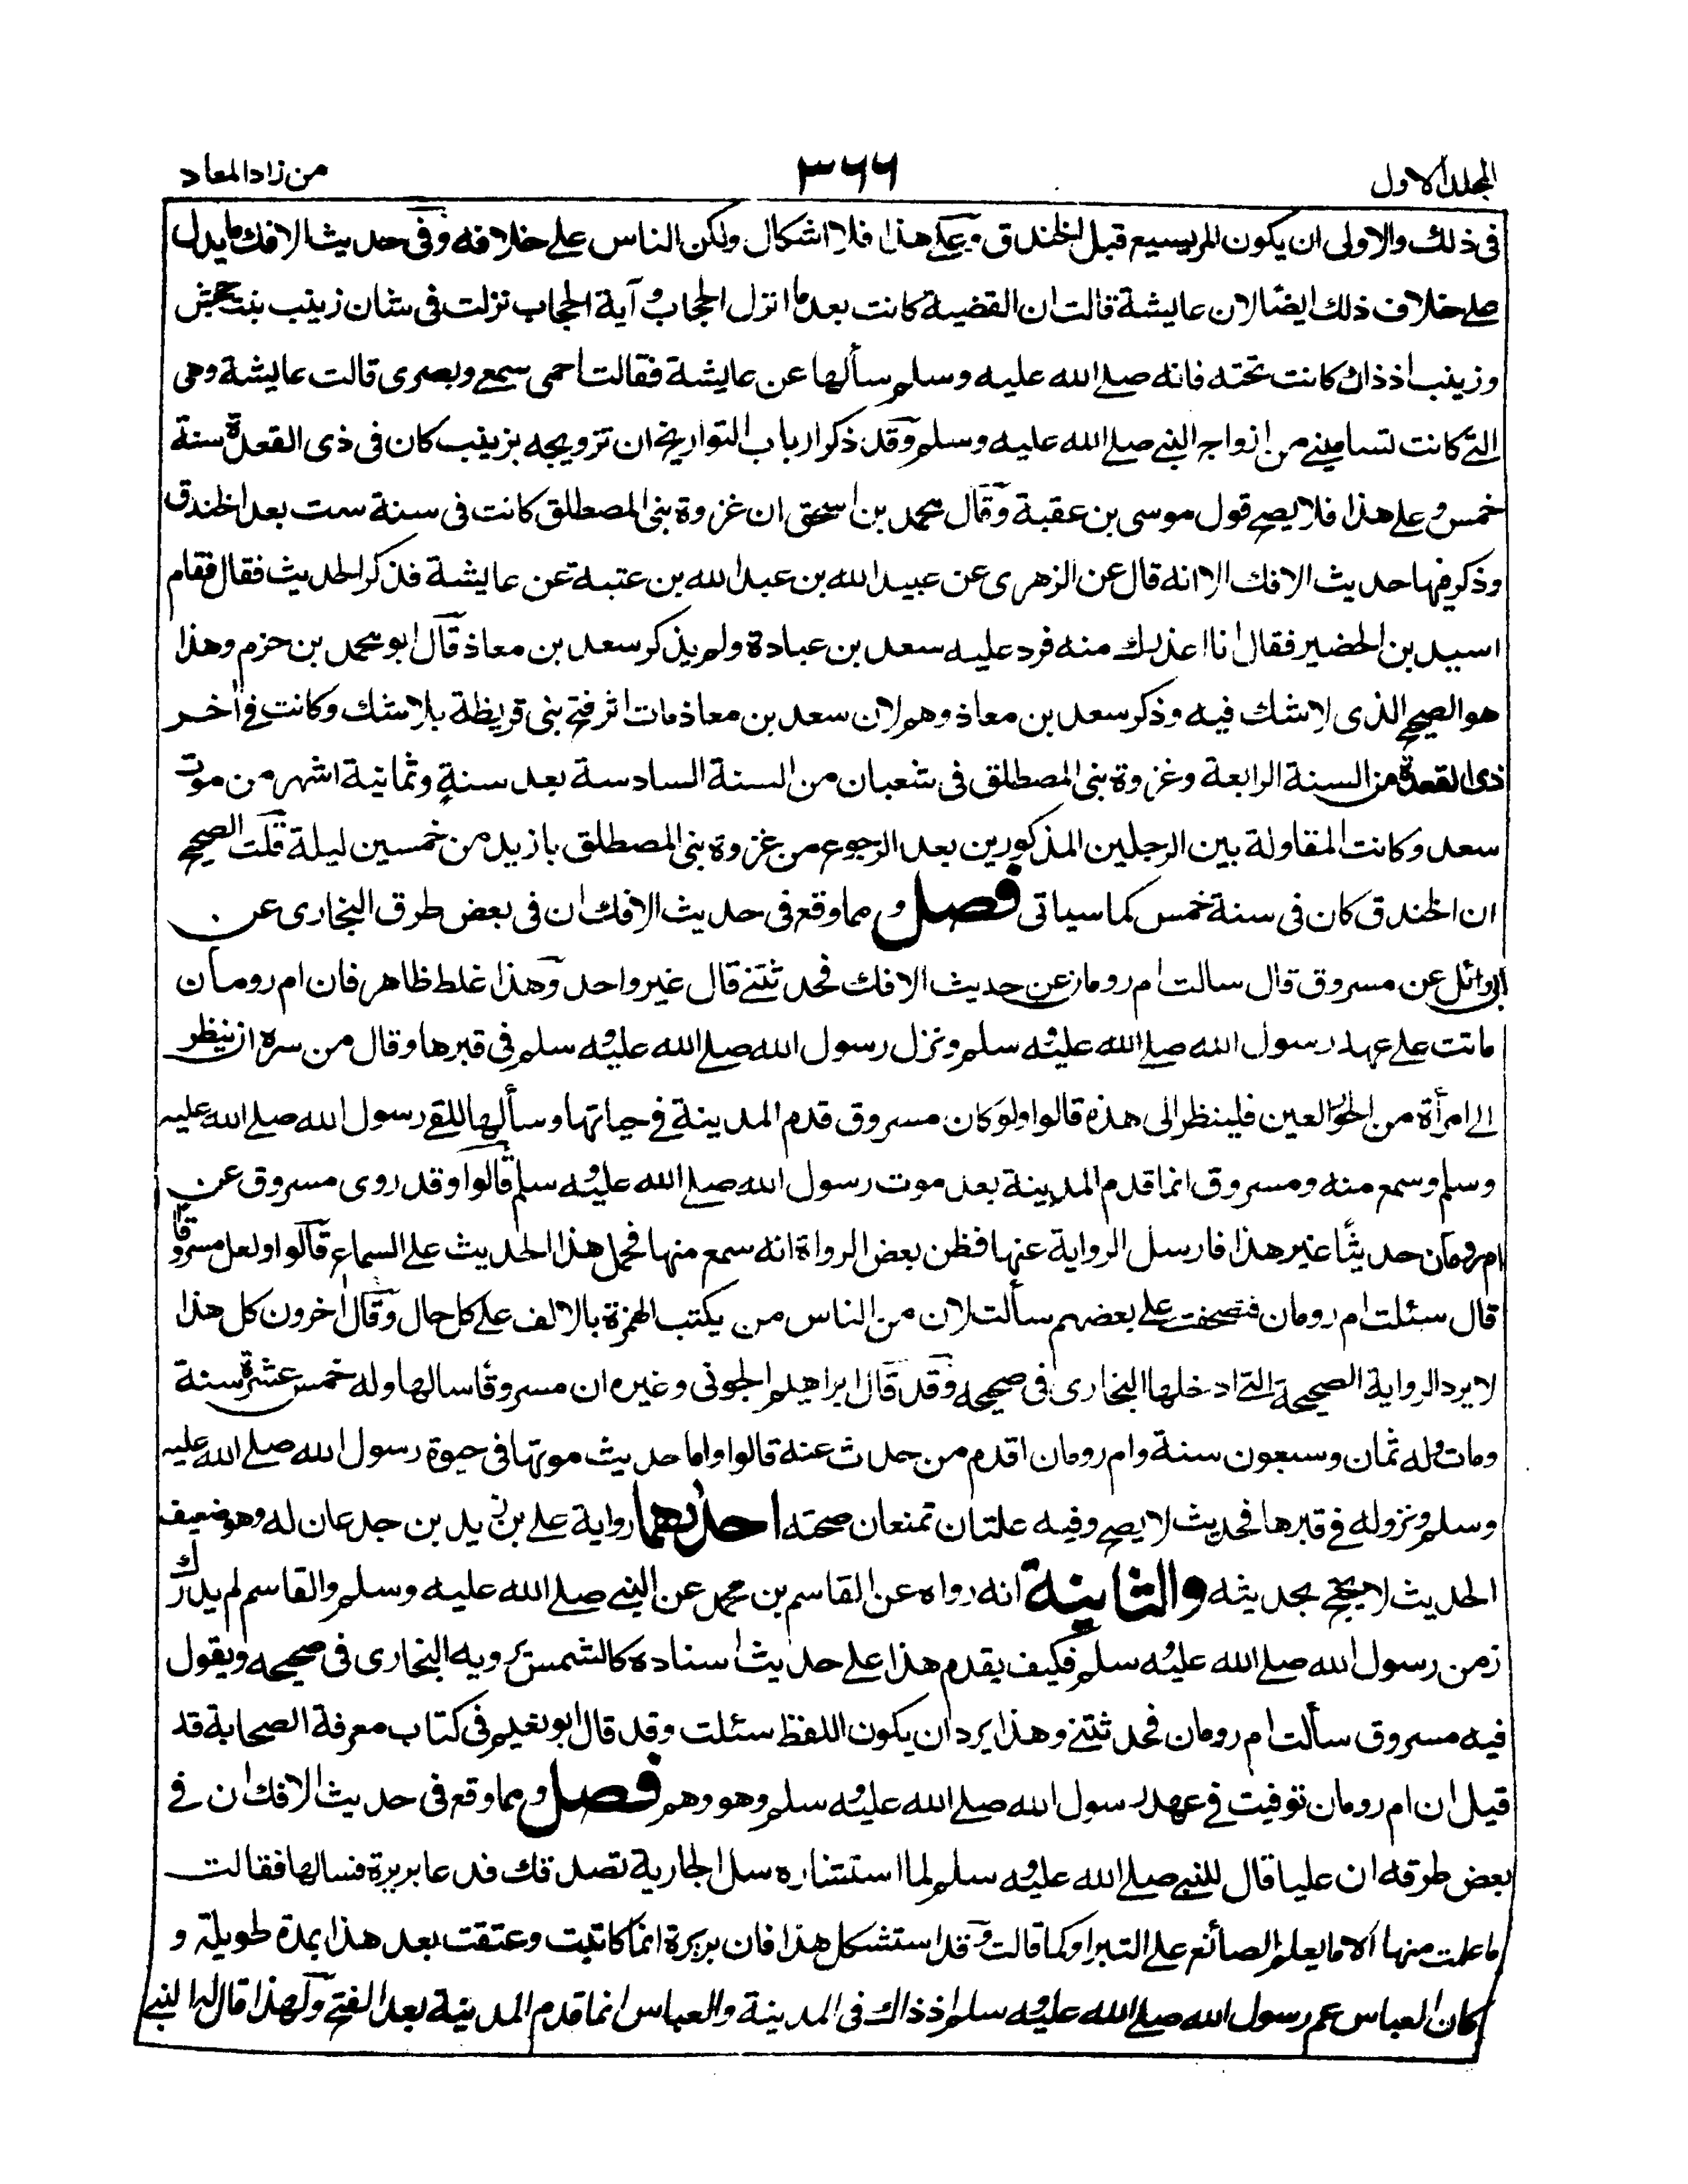 المجلد الاول
٣٦٦
من زاد المعاد
فى ذلك والاولى ان يكون المريسيع قبل الخندق وعلى هذا فلا اشكال ولكن الناس على خلافه وفى حديث الافك ما يدل
على خلاف ذلك ايضًا لان عايشة قالت ان القضية كانت بعد ما انزل الحجاب و آية الحجاب نزلت فى شان زينب بنت جحش
وزينب اذ ذاك كانت تحته فانه صلے الله عليه وسلم سألها عن عايشة فقالت احمى سمعے وبصرى قالت عايشة وهى
التے كانت تسامينے من ازواج النبے صلے الله عليه وسلم وقد ذكر ارباب التواريخ ان تزويجه بزينب كان فى ذى القعدة سنة
خمس و على هذا فلا يصح قول موسى بن عقبة وقال محمد بن اسحق ان غزوة بنى المصطلق كانت فى سنة ست بعد الخندق
وذكر فيها حديث الافك الا انه قال عن الزهرى عن عبيد الله بن عبد الله بن عتبة عن عايشة فذكر الحديث فقال فقام
اسيد بن الحضير فقال انا اعذرك منه فرد عليه سعد بن عبادة ولم يذكر سعد بن معاذ قال ابو محمد بن حزم وهذا
هو الصحيح الذى لا شك فيه وذكر سعد بن معاذ وهم لان سعد بن معاذ مات اثر فتح بنى قريظة بلا شك وكانت فے اٰخر
ذى القعدة من السنة الرابعة وغزوة بنى المصطلق فى شعبان من السنة السادسة بعد سنةٍ وثمانية اشهر من موت
سعد وكانت المقاولة بين الرجلين المذكورين بعد الرجوع من غزوة بنى المصطلق بازيد من خمسين ليلة قلت الصحيح
ان الخندق كان فى سنة خمس كما سياتى فصل و مما وقع فى حديث الافك ان فى بعض طرق البخارى عن
ابى وائل عن مسروق قال سالت ام رومان عن حديث الافك فحدثتنے قال غير واحد وهذا غلط ظاهر فان ام رومان
ماتت على عهد رسول الله صلے الله عليه وسلم ونزل رسول الله صلے الله عليه وسلم فى قبرها وقال من سره ان ينظر
الے امرأة من الحور العين فلينظر الى هذه قالوا ولو كان مسروق قدم المدينة فے حياتها وسألها للقے رسول الله صلے الله عليه
وسلم وسمع منه ومسروق انما قدم المدينة بعد موت رسول الله صلے الله عليه وسلم قالوا وقد روى مسروق عن
ام رومان حديثًا غير هذا فارسل الرواية عنها فظن بعض الرواة انه سمع منها فحمل هذا الحديث على السماع قالوا ولعل مسروقا
قال سئلت ام رومان فتصحفت على بعضهم سألت لان من الناس من يكتب الهمزة بالالف على كل حال وقال اٰخرون كل هذا
لا يرد الرواية الصحيحة التے ادخلها البخارى فى صحيحه وقد قال ابراهيم الجونى وغيره ان مسروقًا سالها وله خمس عشرة سنة
ومات وله ثمان وسبعون سنة وام رومان اقدم من حدث عنه قالوا واما حديث موتها فى حيوة رسول الله صلے الله عليه
وسلم ونزوله فے قبرها فحديث لا يصح وفيه علتان تمنعان صحته احدٰىهما رواية على بن زيد بن جدعان له وهو ضعيف
الحديث لا يحتج بحديثه والثانية انه رواه عن القاسم بن محمد عن النبے صلے الله عليه وسلم والقاسم لم يدرك
زمن رسول الله صلے الله عليه وسلم فكيف يقدم هذا على حديث اسناده كالشمس يرويه البخارى فى صحيحه ويقول
فيه مسروق سألت ام رومان فحدثتنے وهذا يرد ان يكون اللفظ سئلت وقد قال ابو نعيم فى كتاب معرفة الصحابة قد
قيل ان ام رومان توفيت فے عهد رسول الله صلے الله عليه وسلم وهو وهم فصل و مما وقع فى حديث الافك ان فے
بعض طرقه ان عليا قال للنبے صلے الله عليه وسلم لما استشاره سل الجارية تصدقك فدعا بريرة فسالها فقالت
ما علمت منها الا ما يعلم الصائغ على التبر او كما قالت وقد استشكل هذا فان بريرة انما كاتبت وعتقت بعد هذا بمدة طويلة و
كان العباس عم رسول الله صلے الله عليه وسلم اذ ذاك فى المدينة والعباس انما قدم المدينة بعد الفتح ولهذا قال له النبے